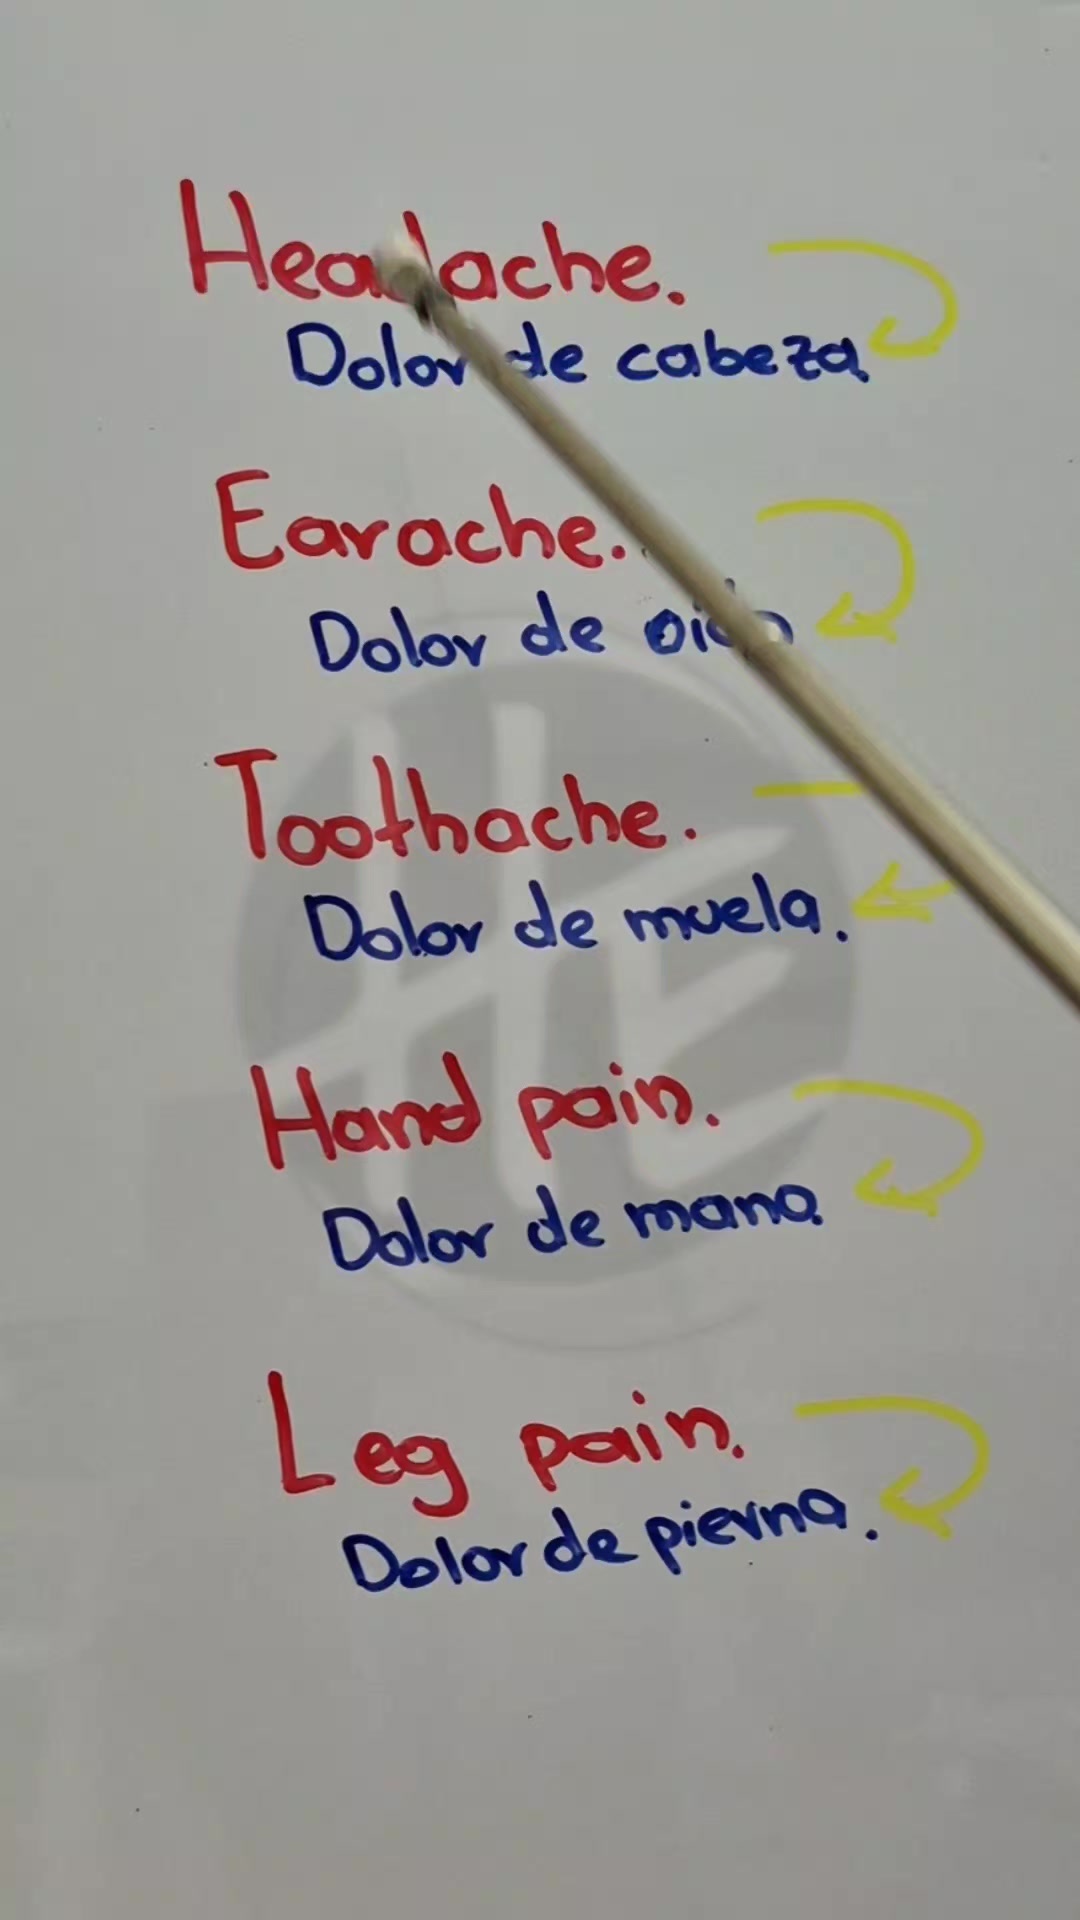 Headache.
Dolor de cabeza.
Earache.
Dolor de oido
Toothache.
Dolor de muela.
Hand pain.
Dolor de mano.
Leg pain.
Dolor de pierna.
HE